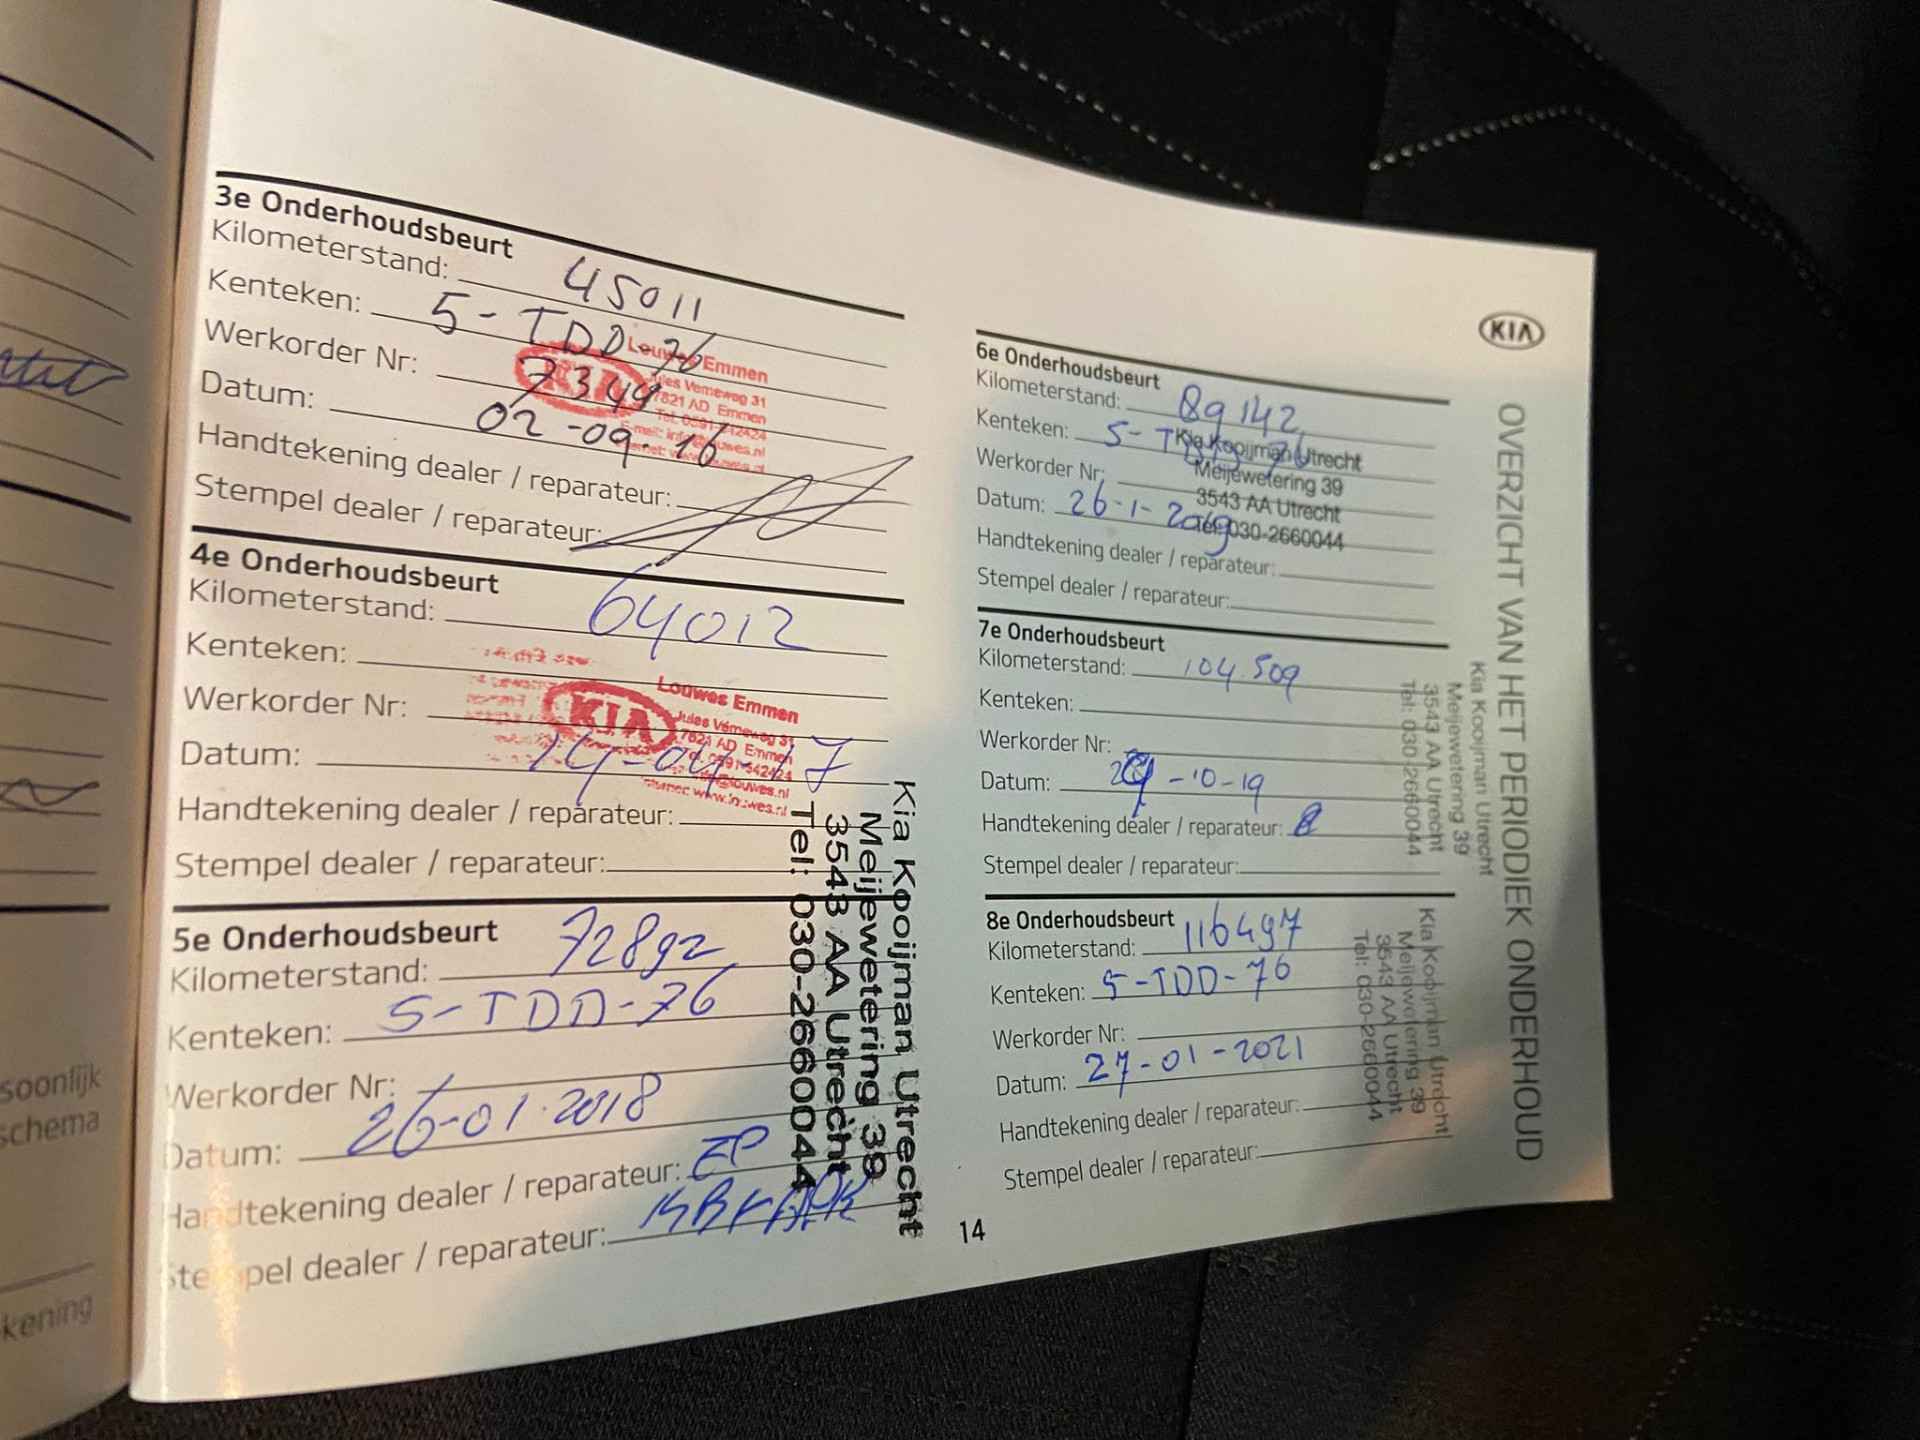 soonlijk
schema
kening
3e Onderhoudsbeurt
Kilometerstand: 45011
Kenteken: 5-TDD-76
Werkorder Nr: 7349
Datum: 02-09-16
Handtekening dealer / reparateur:
Stempel dealer / reparateur:
KIA
Louwes Emmen
Jules Verneweg 31
7821 AD Emmen
4e Onderhoudsbeurt
Kilometerstand: 64012
Kenteken:
Werkorder Nr:
Datum: 14-04-17
Handtekening dealer / reparateur:
Stempel dealer / reparateur:
KIA
Louwes Emmen
Jules Verneweg 31
7821 AD Emmen
5e Onderhoudsbeurt
Kilometerstand: 72892
Kenteken: 5-TDD-76
Werkorder Nr:
Datum: 26-01-2018
Handtekening dealer / reparateur: EP
Stempel dealer / reparateur:
Kia Kooijman Utrecht
Meijewetering 39
3543 AA Utrecht
Tel: 030-2660044
KIA
OVERZICHT VAN HET PERIODIEK ONDERHOUD
6e Onderhoudsbeurt
Kilometerstand: 89142
Kenteken: 5-T 76
Werkorder Nr:
Datum: 26-1-2019
Handtekening dealer / reparateur:
Stempel dealer / reparateur:
Kia Kooijman Utrecht
Meijewetering 39
3543 AA Utrecht
Tel: 030-2660044
7e Onderhoudsbeurt
Kilometerstand: 104.509
Kenteken:
Werkorder Nr:
Datum: -10-19
Handtekening dealer / reparateur:
Stempel dealer / reparateur:
Kia Kooijman Utrecht
Meijewetering 39
3543 AA Utrecht
Tel: 030-2660044
8e Onderhoudsbeurt
Kilometerstand: 116497
Kenteken: 5-TDD-76
Werkorder Nr:
Datum: 27-01-2021
Handtekening dealer / reparateur:
Stempel dealer / reparateur:
Kia Kooijman Utrecht
Meijewetering 39
3543 AA Utrecht
Tel: 030-2660044
14